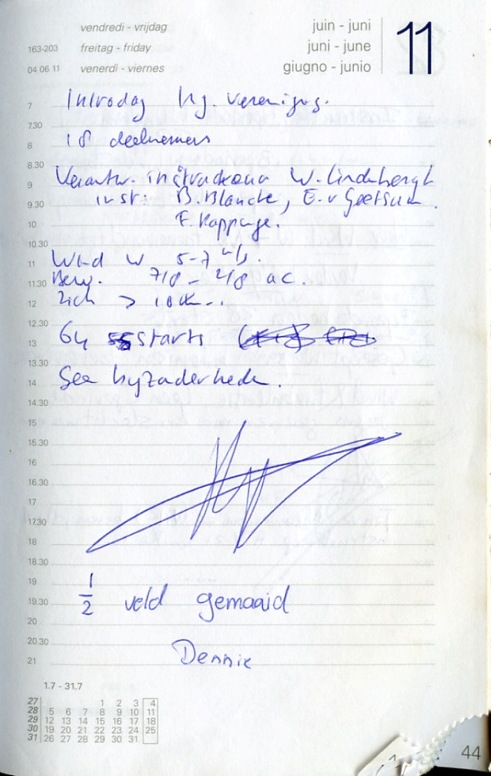 vendredi - vrijdag
juin - juni
11
163-203 freitag - friday
juni - june
04 06 11 venerdì - viernes
giugno - junio
7 Introdag
7.30
8 18 deelnemers
8.30
9 W. Lindebergh
9.30 inst: B. Blanche, E. v
10 F.
10.30
11 Wind W 5-7
11.30 Bew. 7/8 - 2/8 ac.
12 zich >
12.30
13 64 starts
13.30
14 Gee byzonderheden.
14.30
15
15.30
16
16.30
17
17.30
18
18.30
19
19.30 1/2 veld gemaaid
20
20.30
21 Dennie
1.7 - 31.7
27 1 2 3 4
28 5 6 7 8 9 10 11
29 12 13 14 15 16 17 18
30 19 20 21 22 23 24 25
31 26 27 28 29 30 31
44